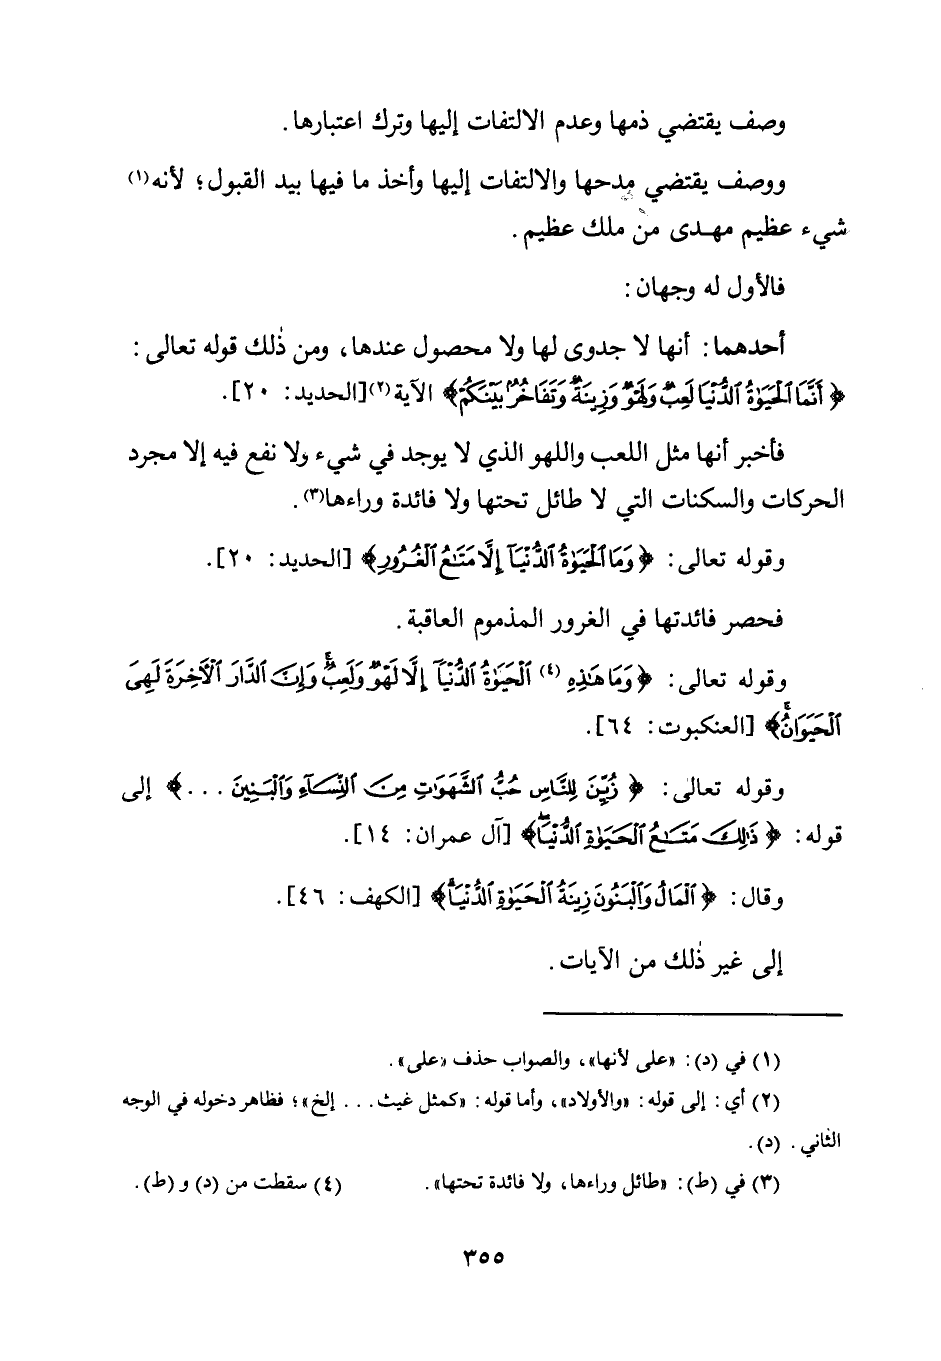 وصف يقتضي ذمها وعدم الالتفات إليها وترك اعتبارها.
ووصف يقتضي مدحها والالتفات إليها وأخذ ما فيها بيد القبول؛ لأنه(١)
شيء عظيم مهدى من ملك عظيم.
فالأول له وجهان:
أحدهما: أنها لا جدوى لها ولا محصول عندها، ومن ذٰلك قوله تعالى:
﴿أَنَّمَا ٱلْحَيَوٰةُ ٱلدُّنْيَا لَعِبٌ وَلَهْوٌ وَزِينَةٌ وَتَفَاخُرٌۢ بَيْنَكُمْ﴾ الآية(٢) [الحديد: ٢٠].
فأخبر أنها مثل اللعب واللهو الذي لا يوجد في شيء ولا نفع فيه إلا مجرد
الحركات والسكنات التي لا طائل تحتها ولا فائدة وراءها(٣).
وقوله تعالى: ﴿وَمَا ٱلْحَيَوٰةُ ٱلدُّنْيَآ إِلَّا مَتَٰعُ ٱلْغُرُورِ﴾ [الحديد: ٢٠].
فحصر فائدتها في الغرور المذموم العاقبة.
وقوله تعالى: ﴿وَمَا هَٰذِهِ(٤) ٱلْحَيَوٰةُ ٱلدُّنْيَآ إِلَّا لَهْوٌ وَلَعِبٌ ۚ وَإِنَّ ٱلدَّارَ ٱلْأٓخِرَةَ لَهِىَ
ٱلْحَيَوَانُ ۚ﴾ [العنكبوت: ٦٤].
وقوله تعالى: ﴿زُيِّنَ لِلنَّاسِ حُبُّ ٱلشَّهَوَٰتِ مِنَ ٱلنِّسَآءِ وَٱلْبَنِينَ ...﴾ إلى
قوله: ﴿ذَٰلِكَ مَتَٰعُ ٱلْحَيَوٰةِ ٱلدُّنْيَا ۖ﴾ [آل عمران: ١٤].
وقال: ﴿ٱلْمَالُ وَٱلْبَنُونَ زِينَةُ ٱلْحَيَوٰةِ ٱلدُّنْيَا ۖ﴾ [الكهف: ٤٦].
إلى غير ذٰلك من الآيات.
(١) في (د): «على لأنها»، والصواب حذف «على».
(٢) أي: إلى قوله: «والأولاد»، وأما قوله: «كمثل غيث... إلخ»؛ فظاهر دخوله في الوجه
الثاني. (د).
(٣) في (ط): «طائل وراءها، ولا فائدة تحتها». (٤) سقطت من (د) و (ط).
٣٥٥